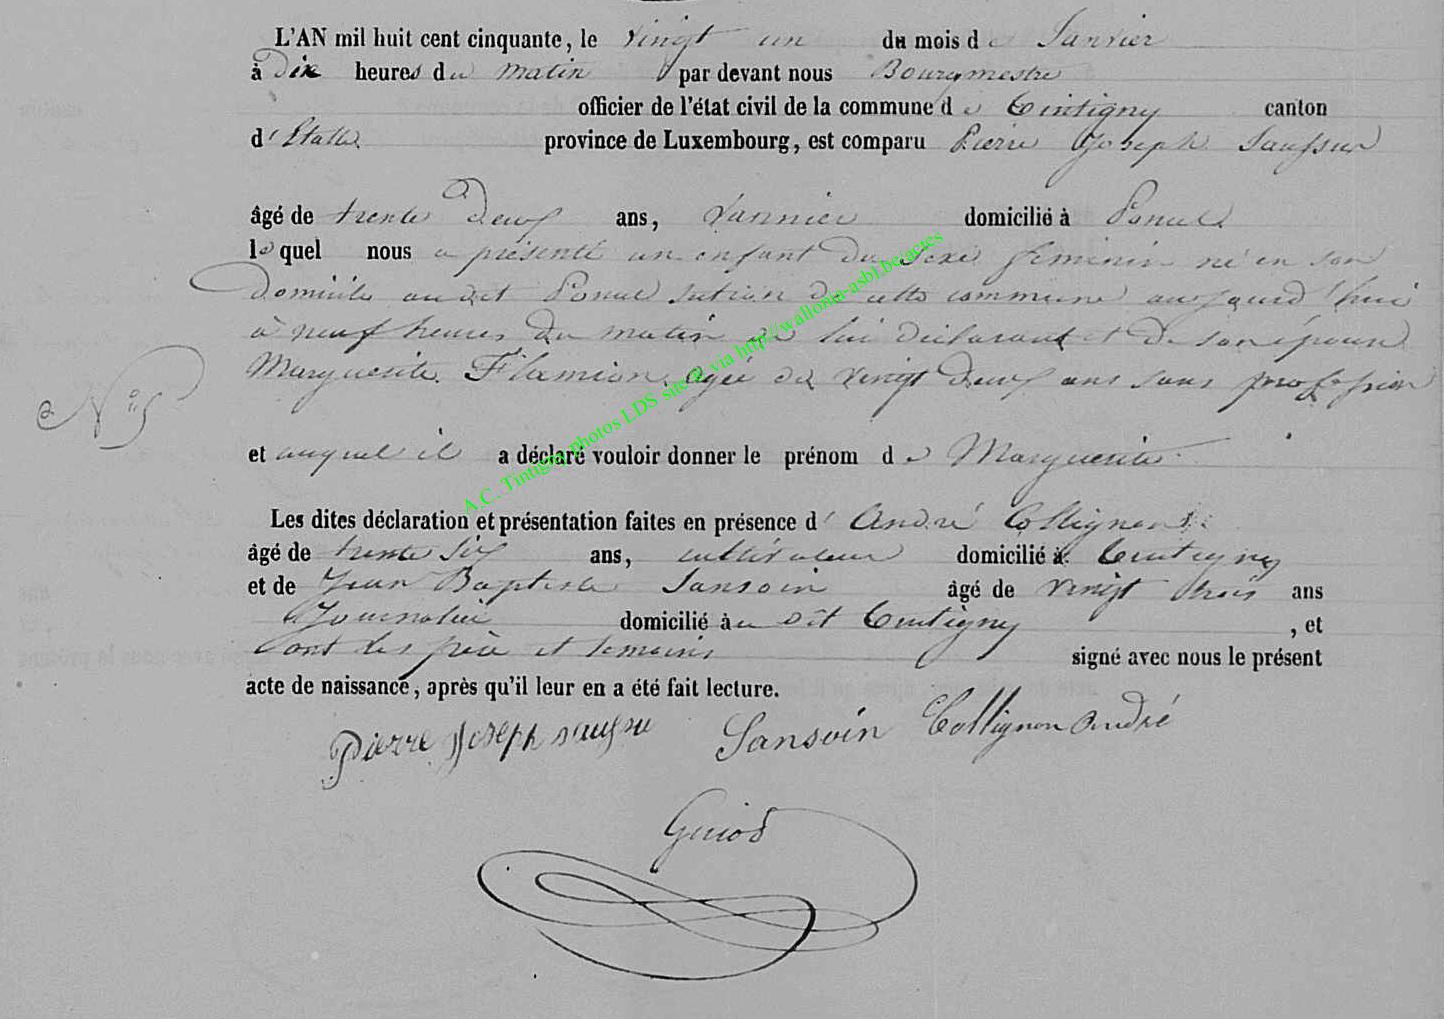 L'AN mil huit cent cinquante, le vingt un du mois de Janvier
à dix heures du matin par devant nous Bourgmestre
officier de l'état civil de la commune de Tintigny canton
d'Etalle province de Luxembourg, est comparu Pierre Joseph
âgé de trente deux ans, Vannier domicilié à
lequel nous a présenté un enfant du sexe féminin né en son
domicile audit section de cette commune aujourd'hui
à neuf heures du matin de lui déclarant et de son épouse
Marguerite Flamion, agée de vingt deux ans sans profession
N° 5
et auquel il a déclaré vouloir donner le prénom de Marguerite
A.C. Tintigny photos LDS site © via http://wallonia-asbl.be/actes
Les dites déclaration et présentation faites en présence d'André Collignon
âgé de trente six ans, cultivateur domicilié à Tintigny
et de Jean Baptiste Sansoin âgé de vingt trois ans
Journalier domicilié au dit Tintigny, et
ont les père et témoins signé avec nous le présent
acte de naissance, après qu'il leur en a été fait lecture.
Pierre Joseph Sansoin Collignon André